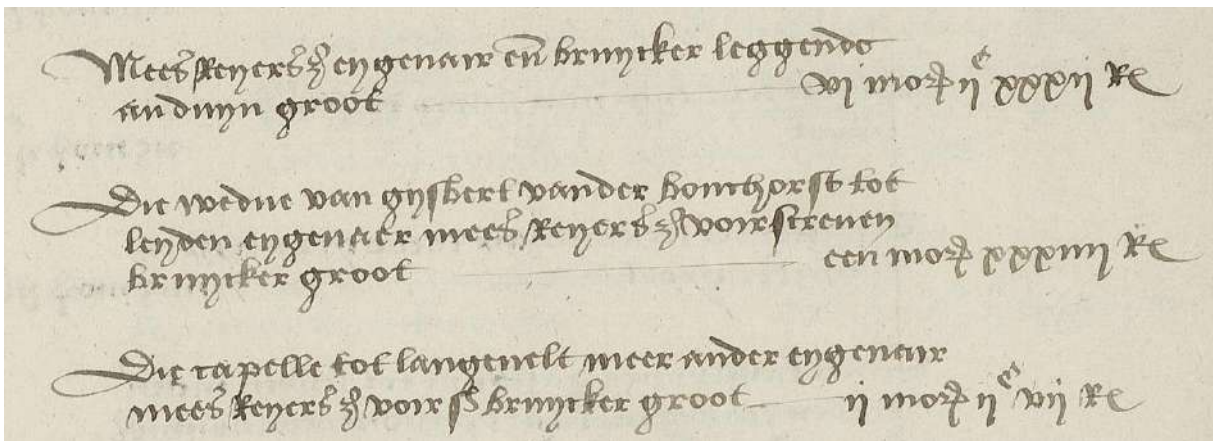 Mees Reyers z eygenair en bruycker leggende
an duyn groot vi morg ii c xxxii Re
Die wedue van gysbert vander bouchorst tot
leyden eygenaer mees Reyers z voirscreuen
bruycker groot een morg xxxiiii Re
Die capelle tot langeuelt meer ander eygenair
mees Reyers z voirs bruycker groot ii morg ii c vii Re